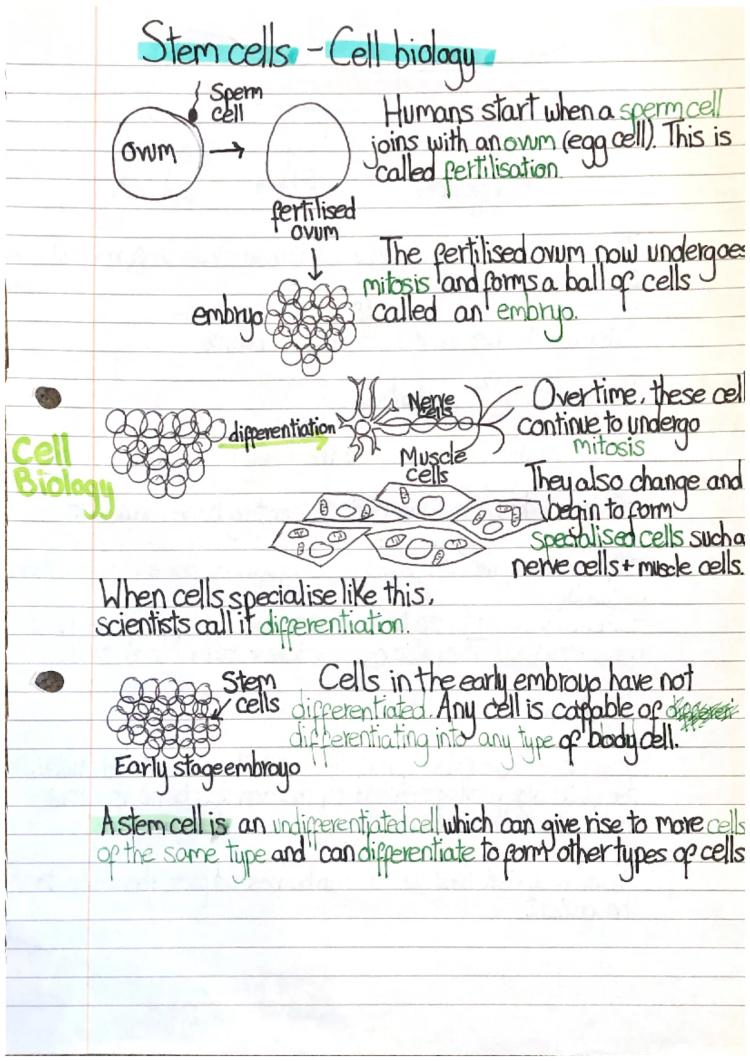 Stem cells - Cell biology
Sperm
cell
Ovum
fertilised
ovum
Humans start when a sperm cell
joins with an ovum (egg cell). This is
called fertilisation.
The fertilised ovum now undergoes
mitosis and forms a ball of cells
called an embryo.
embryo
differentiation
Nerve
cells
Muscle
cells
Overtime, these cell
continue to undergo
mitosis
They also change and
begin to form
specialised cells such a
nerve cells + muscle cells.
Cell
Biology
When cells specialise like this,
scientists call it differentiation.
Stem
cells
Early stage embroyo
Cells in the early embroyo have not
differentiated. Any cell is capable of
differentiating into any type of body cell.
A stem cell is an undifferentiated cell which can give rise to more cells
of the same type and can differentiate to form other types of cells